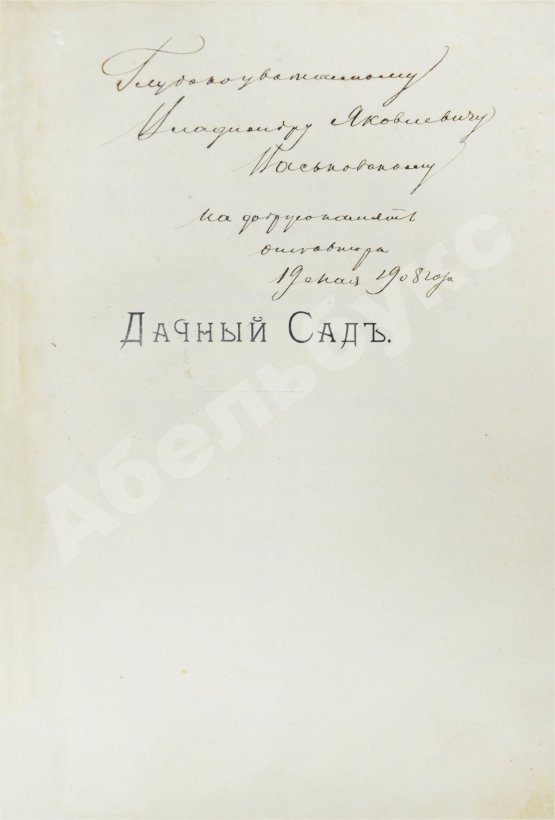 Глубокоуважаемому
Владимиру Яковлевичу
Паськовскому
на добрую память
от автора
19 мая 1908 года
Дачный Садъ.
Абельбукс